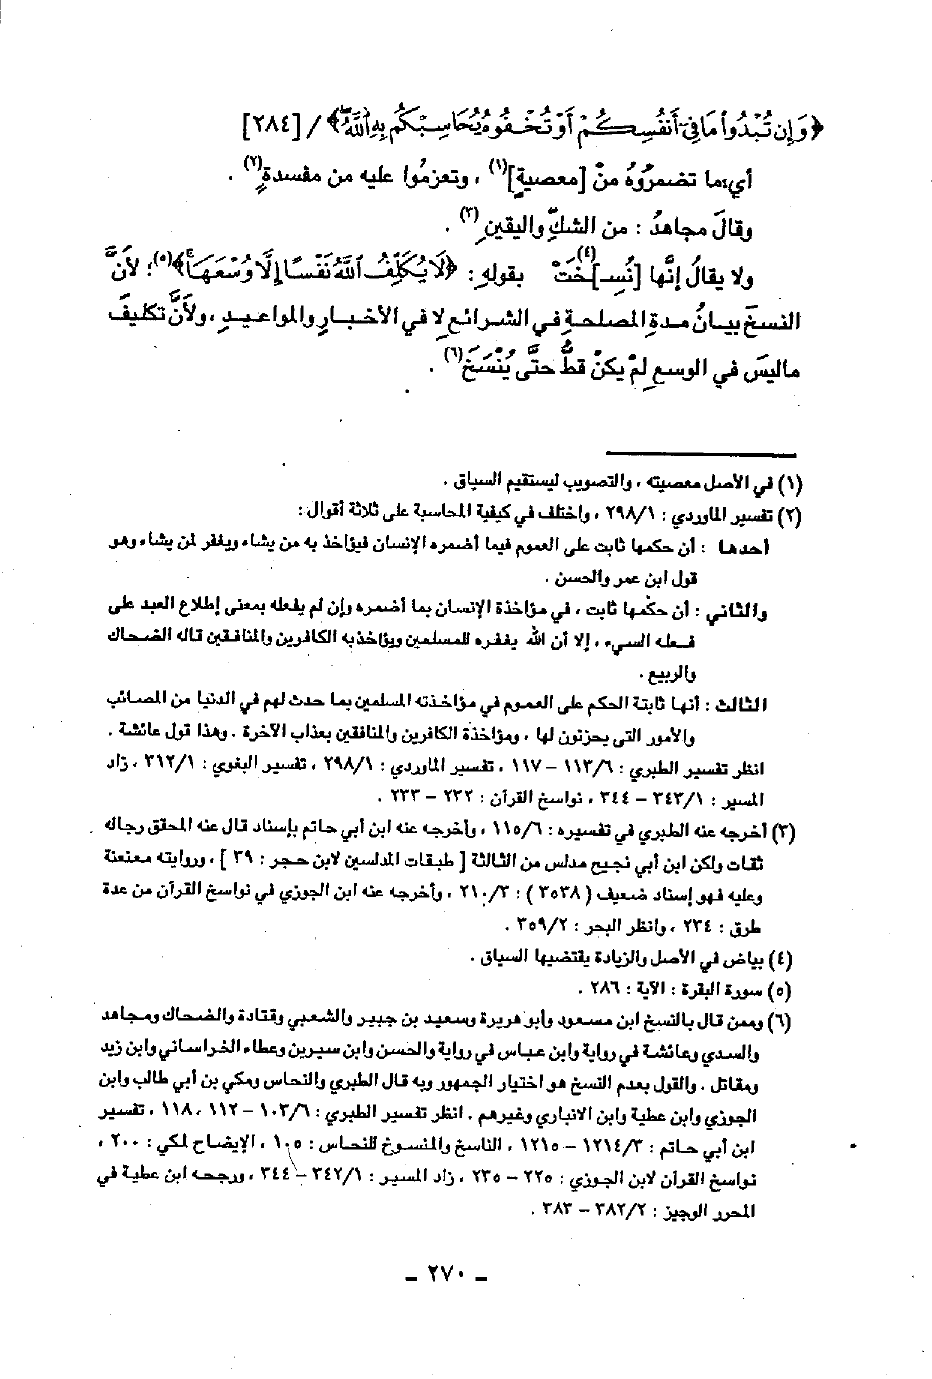 ﴿وَإِن تُبْدُوا مَا فِىٓ أَنفُسِكُمْ أَوْ تُخْفُوهُ يُحَاسِبْكُم بِهِ اللَّهُ﴾ / [٢٨٤]
أي: ما تضمرُوهُ منْ [معصيةٍ](١) ، وتعزمُوا عليه من مفسدةٍ(٢) .
وقالَ مجاهدُ : من الشكِّ واليقينِ(٣) .
ولا يقالُ إنَّها [نُسِـ]ـخَتْ(٤) بقولهِ : ﴿لَا يُكَلِّفُ اللَّهُ نَفْسًا إِلَّا وُسْعَهَا﴾(٥)؛ لأنَّ
النسخَ بيـانُ مدةِ المصلحـةِ في الشـرائـعِ لا في الأخبـارِ والمواعيـدِ ، ولأنَّ تكليفَ
ماليسَ في الوسعِ لمْ يكنْ قطُّ حتَّى يُنْسَخَ(٦) .
(١) في الأصل معصيته ، والتصويب ليستقيم السياق .
(٢) تفسير الماوردي : ٢٩٨/١ ، واختلف في كيفية المحاسبة على ثلاثة أقوال :
أحدها : أن حكمها ثابت على العموم فيما أضمره الإنسان فيؤاخذ به من يشاء ويغفر لمن يشاء وهو
قول ابن عمر والحسن .
والثاني : أن حكمها ثابت ، في مؤاخذة الإنسان بما أضمره وإن لم يفعله بمعنى إطلاع العبد على
فعله السيء ، إلا أن الله يغفره للمسلمين ويؤاخذ به الكافرين والمنافقين قاله الضحاك
والربيع .
الثالث : أنها ثابتة الحكم على العموم في مؤاخذته المسلمين بما حدث لهم في الدنيا من المصائب
والأمور التى يحزنون لها ، ومؤاخذة الكافرين والمنافقين بعذاب الآخرة . وهذا قول عائشة .
انظر تفسير الطبري : ١١٣/٦ – ١١٧ ، تفسير الماوردي : ٢٩٨/١ ، تفسير البغوي : ٣١٢/١ ، زاد
المسير : ٣٤٣/١ – ٣٤٤ ، نواسخ القرآن : ٢٣٢ – ٢٣٣ .
(٣) أخرجه عنه الطبري في تفسيره : ١١٥/٦ ، وأخرجه عنه ابن أبي حاتم بإسناد قال عنه المحقق رجاله
ثقات ولكن ابن أبي نجيح مدلس من الثالثة [ طبقات المدلسين لابن حجر : ٣٩ ] ، وروايته معنعنة
وعليه فهو إسناد ضعيف ( ٣٥٣٨ ) : ٢١٠/٣ ، وأخرجه عنه ابن الجوزي في نواسخ القرآن من عدة
طرق : ٢٣٤ ، وانظر البحر : ٣٥٩/٢ .
(٤) بياض في الأصل والزيادة يقتضيها السياق .
(٥) سورة البقرة : الآية : ٢٨٦ .
(٦) وممن قال بالنسخ ابن مسعود وأبو هريرة وسعيد بن جبير والشعبي وقتادة والضحاك ومجاهد
والسدي وعائشة في رواية وابن عباس في رواية والحسن وابن سيرين وعطاء الخراساني وابن زيد
ومقاتل . والقول بعدم النسخ هو اختيار الجمهور وبه قال الطبري والنحاس ومكي بن أبي طالب وابن
الجوزي وابن عطية وابن الانباري وغيرهم . انظر تفسير الطبري : ١٠٣/٦ – ١١٢ ، ١١٨ ، تفسير
ابن أبي حاتم : ١٢١٤/٣ – ١٢١٥ ، الناسخ والمنسوخ للنحاس : ١٠٥ ، الإيضاح لمكي : ٢٠٠ ،
نواسخ القرآن لابن الجوزي : ٢٢٥ – ٢٣٥ ، زاد المسير : ٣٤٢/١ – ٣٤٤ ، ورجحه ابن عطية في
المحرر الوجيز : ٣٨٢/٢ – ٣٨٣ .
– ٢٧٠ –